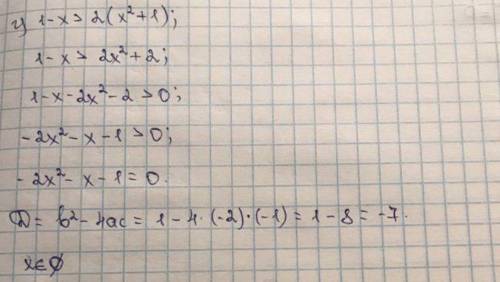 г) 1-x > 2(x²+1);
1-x > 2x²+2;
1-x-2x²-2 > 0;
-2x²-x-1 > 0;
-2x²-x-1 = 0.
D = b²-4ac = 1-4·(-2)·(-1) = 1-8 = -7.
x∈∅